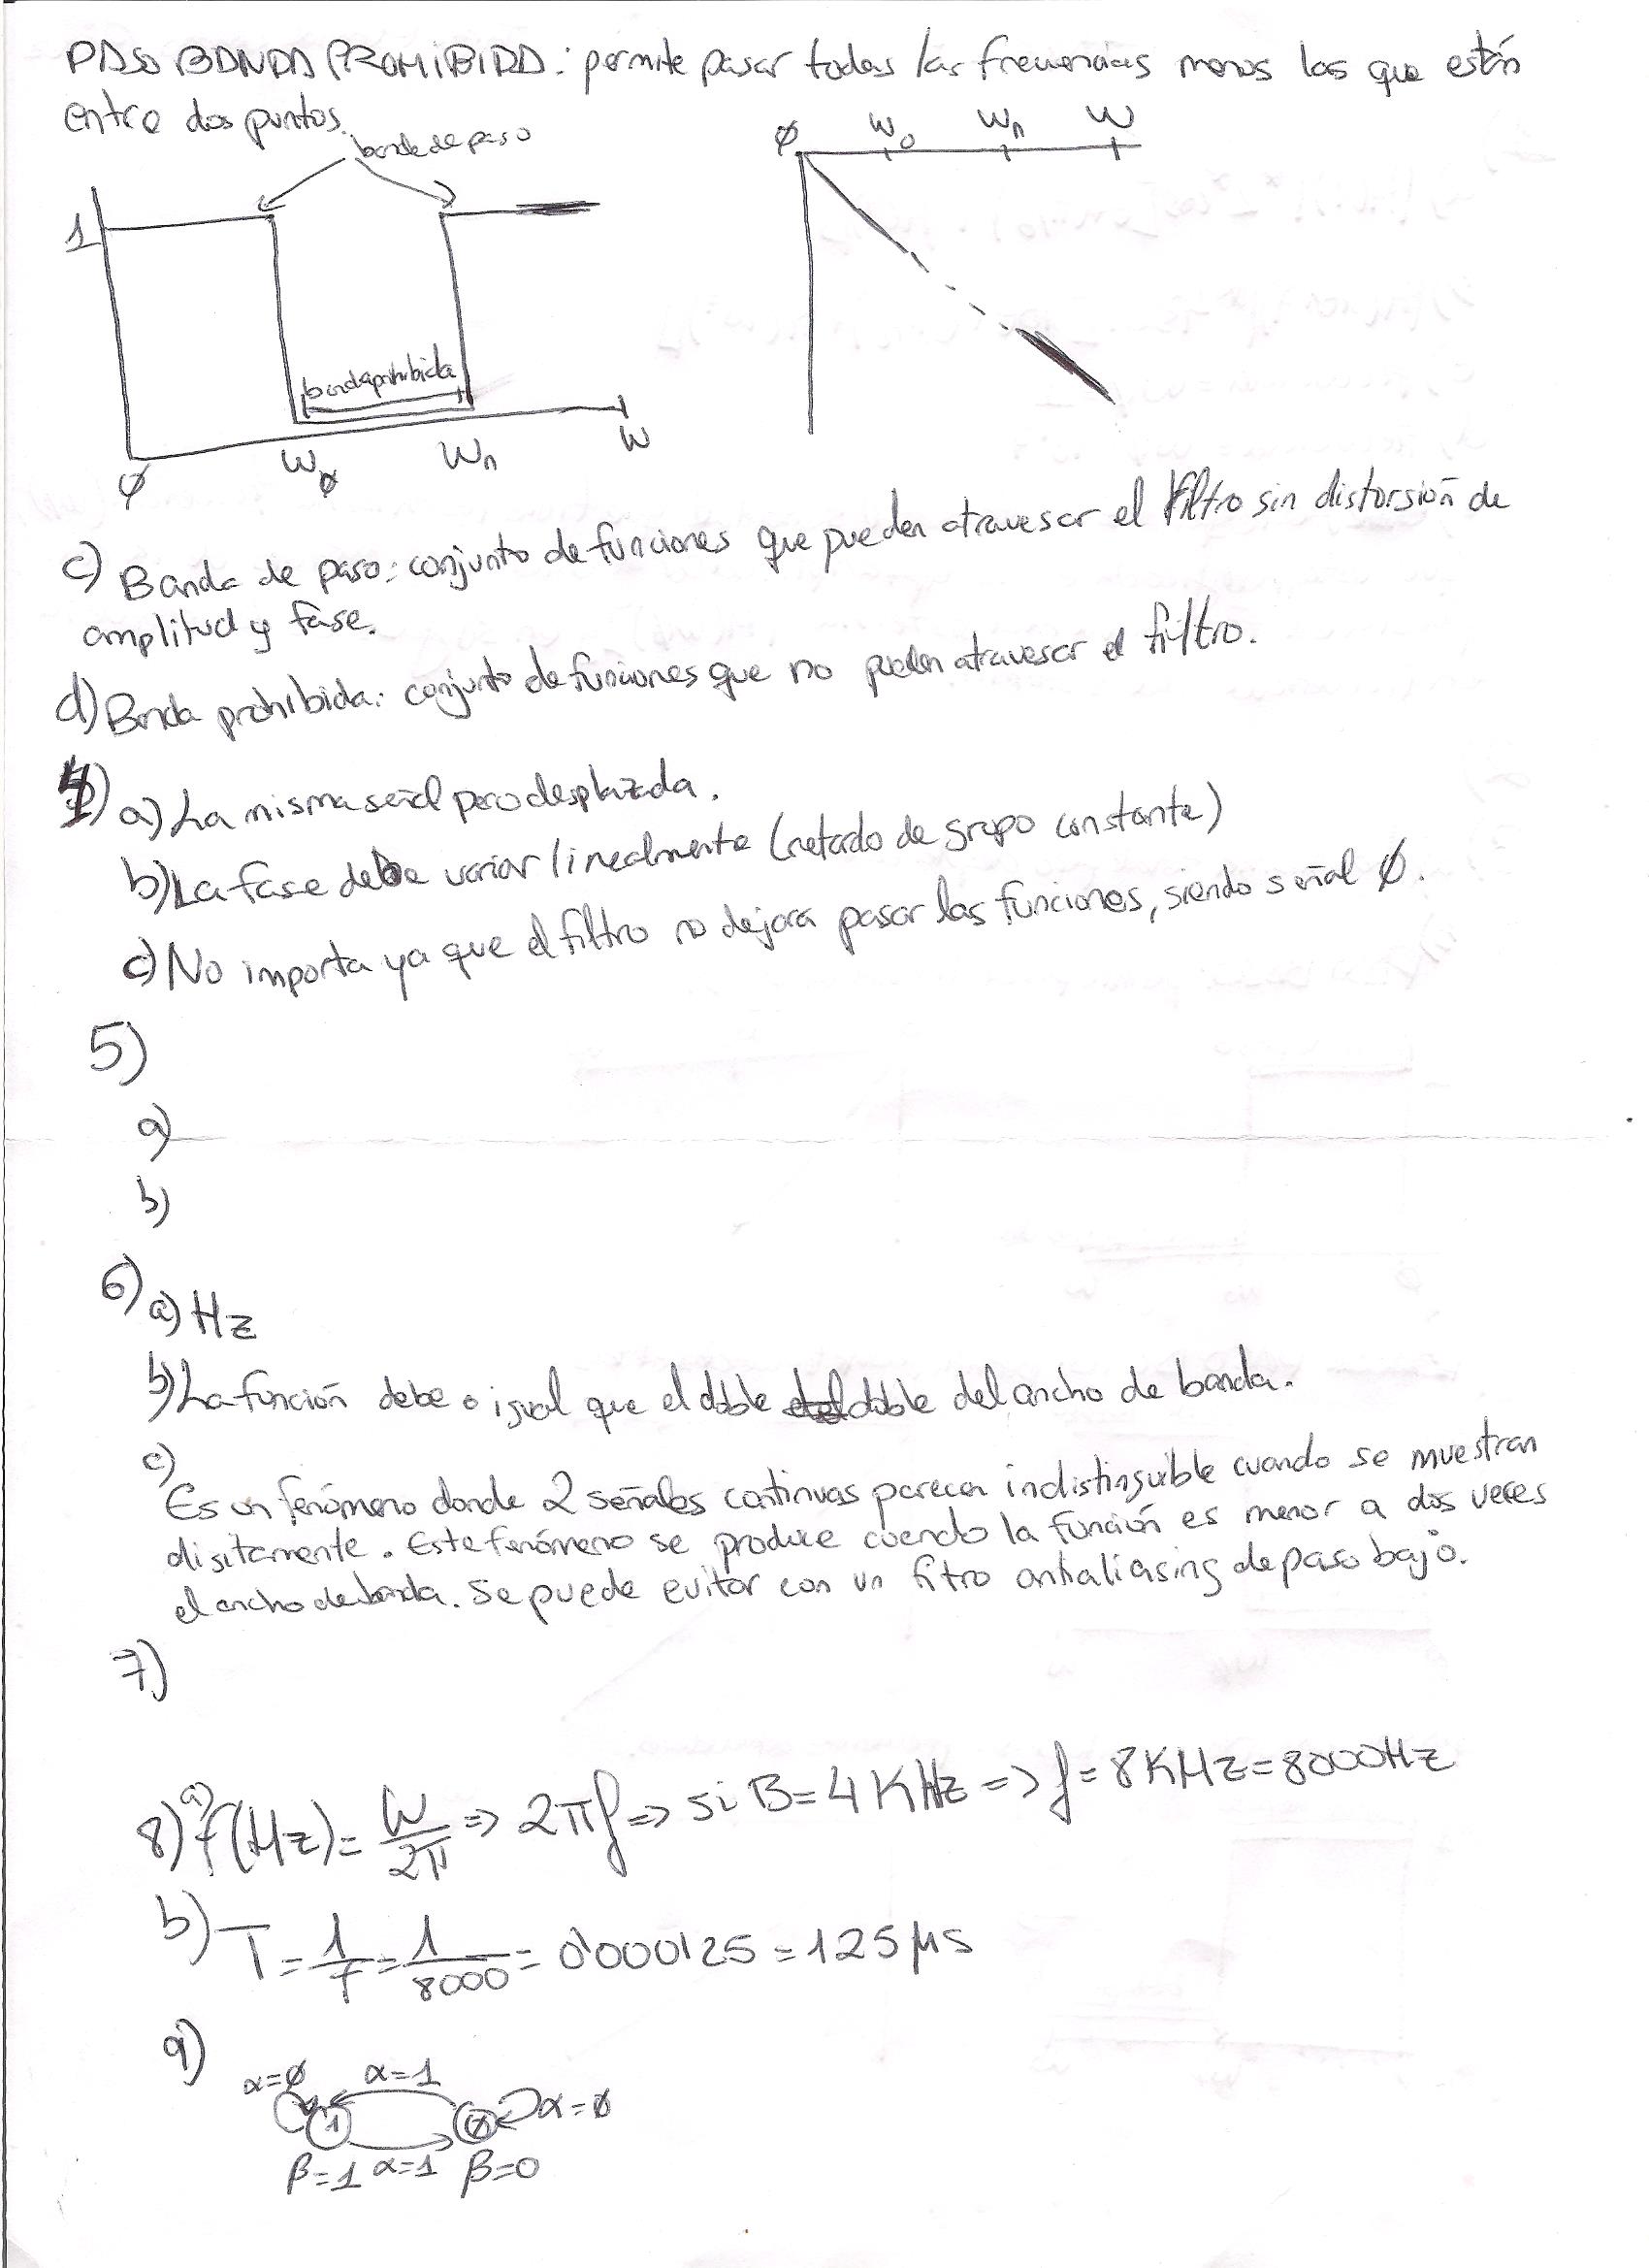 PASO BANDA PROHIBIDA: permite pasar todas las frecuencias menos las que están
entre dos puntos.
banda de paso
1
banda prohibida
φ
W φ
W n
W
φ
W o
W n
W
c) Banda de paso: conjunto de funciones que pueden atravesar el filtro sin distorsión de
amplitud y fase.
d) Banda prohibida: conjunto de funciones que no pueden atravesar el filtro.
4) a) La misma señal pero desplazada.
b) La fase debe variar linealmente (retardo de grupo constante)
c) No importa ya que el filtro no dejará pasar las funciones, siendo señal φ.
5)
a)
b)
6) a) Hz
b) La función debe o igual que el doble doble del ancho de banda.
c)
Es un fenómeno donde 2 señales continuas parecen indistinguible cuando se muestran
digitamente. Este fenómeno se produce cuando la función es menor a dos veces
el ancho de banda. Se puede evitar con un fitro antialiasing de paso bajo.
7)
8) a) f(Hz) = W/2π => 2πf => si B = 4 KHz => f = 8 KHz = 8000Hz
b) T = 1/f = 1/8000 = 0'000125 = 125 μs
9)
α=φ α=1
1 φ α=φ
β=1 α=1 β=0